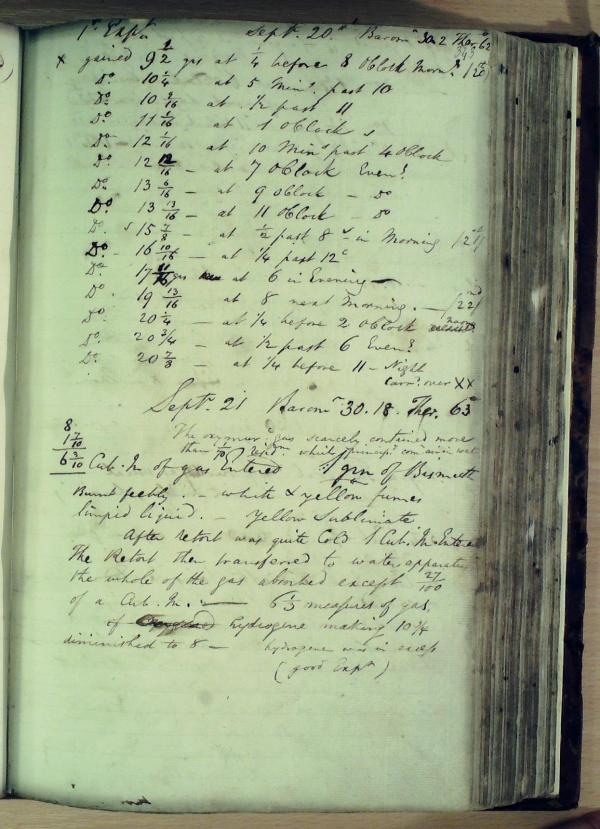 1st Expt. Sept. 20th Barom 30.2 Ther. 62
x gained 9 1/2 grs at 1/4 before 8 OClock Morng. /20
Do 10 1/4 - at 5 Mins. past 10
Do 10 9/16 at 1/2 past 11
Do 11 1/16 at 1 OClock
Do 12 1/16 at 10 Mins past 4 OClock
Do 12 12/16 - at 7 OClock Eveng.
Do 13 6/16 - at 9 OClock - Do
Do 13 13/16 - at 11 OClock - Do
Do 15 7/8 - at 1/2 past 8 - in Morning /21
Do - 16 10/16 - at 1/4 past 12
Do 17 11/16 grs at 6 in Evening -
Do 19 13/16 at 8 next Morning. - /22
Do 20 1/4 - at 1/4 before 2 OClock
Do 20 3/4 - at 1/2 past 6 Eveng.
Do 20 7/8 - at 1/4 before 11 - Night
Carrd. over XX
Sept. 21 Barom 30.18. Ther. 63
8
1 7/10 The oxymur. gas scarcely contained more
than 1/70 which common air
6 3/10 Cub. In of gas Entered 1 grn of Bismuth
Burnt feebly. - white & yellow fumes
limpid liquid. - Yellow Sublimate
After retort was quite Cold 1 Cub. In. Entered
The Retort then transferred to water apparatus
the whole of the gas absorbed except 27/100
of a Cub. In. - 65 measures of gas,
of hydrogene making 10 3/4
diminished to 8 - hydrogene was in excess
(good Expt)